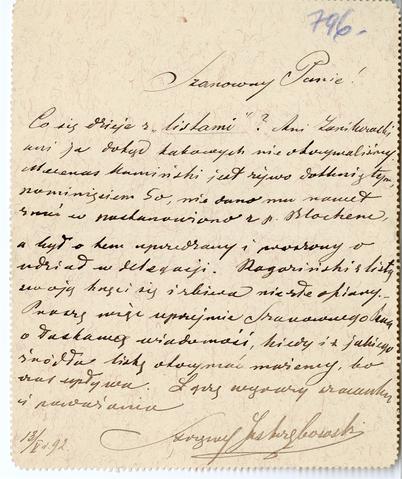 796.
Szanowny Panie!
Co się dzieje z „listami"? Ani
ani ja dotąd takowych nie otrzymaliśmy
Mecenas Kamiński jest żywo dotknięty
pominięciem Go, nie dano mu nawet
znać w postanowiono z p. Blochem
a był o tem uprzedzany i proszony o
udział w delegacji. Rogoziński z listą
swoją kręci się i zbiera nieźle
Proszę więc uprzejmie Szanownego
o łaskawą wiadomość, kiedy i z jakiego
źródła listę otrzymać możemy, bo
czas upływa. Łączę wyrazy szacunku
i poważania
Jastrzębowski
18/ 92